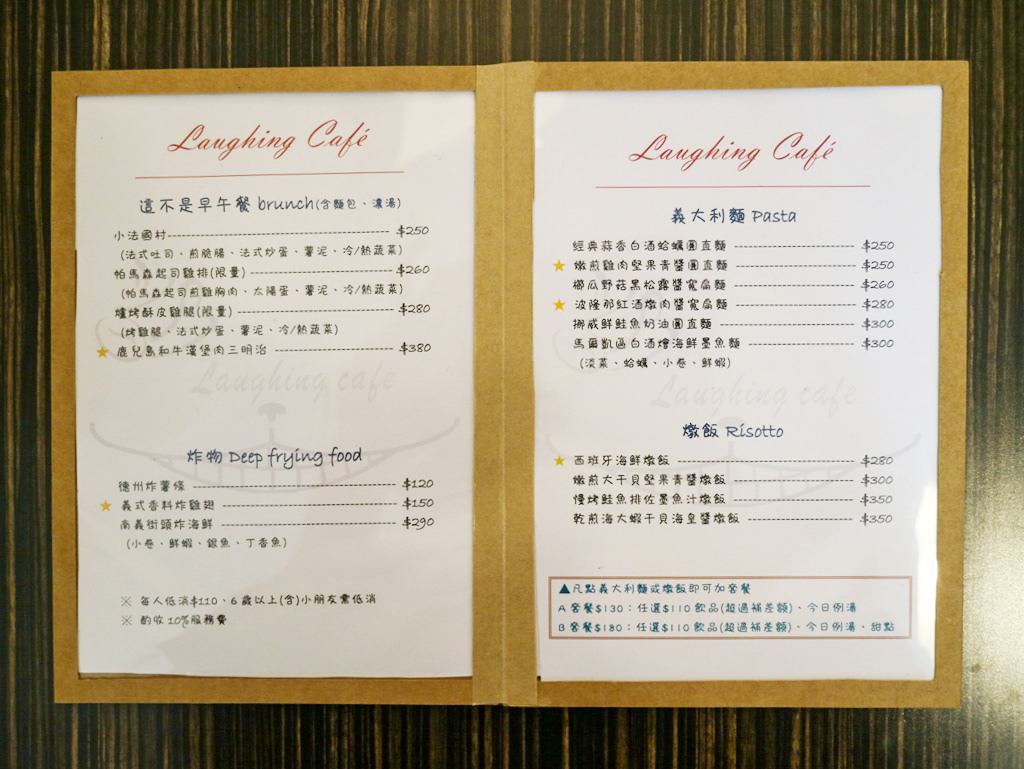 Laughing Café
這不是早午餐 brunch(含麵包、濃湯)
小法國村 $250
(法式吐司、煎脆腸、法式炒蛋、薯泥、冷/熱蔬菜)
帕馬森起司雞排(限量) $260
(帕馬森起司煎雞胸肉、太陽蛋、薯泥、冷/熱蔬菜)
爐烤酥皮雞腿(限量) $280
(烤雞腿、法式炒蛋、薯泥、冷/熱蔬菜)
★ 鹿兒島和牛漢堡肉三明治 $380
Laughing cafe
炸物 Deep frying food
德州炸薯條 $120
★ 義式香料炸雞翅 $150
南義街頭炸海鮮 $290
(小卷、鮮蝦、銀魚、丁香魚)
※ 每人低消$110、6歲以上(含)小朋友需低消
※ 酌收10%服務費
Laughing Café
義大利麵 Pasta
經典蒜香白酒蛤蠣圓直麵 $250
★ 嫩煎雞肉堅果青醬圓直麵 $250
櫛瓜野菇黑松露醬寬扁麵 $260
★ 波隆那紅酒燉肉醬寬扁麵 $280
挪威鮮鮭魚奶油圓直麵 $300
馬爾凱區白酒燴海鮮墨魚麵 $300
(淡菜、蛤蠣、小卷、鮮蝦)
Laughing cafe
燉飯 Risotto
★ 西班牙海鮮燉飯 $280
嫩煎大干貝堅果青醬燉飯 $300
慢烤鮭魚排佐墨魚汁燉飯 $350
乾煎海大蝦干貝海皇醬燉飯 $350
▲凡點義大利麵或燉飯即可加套餐
A 套餐$130：任選$110飲品(超過補差額)、今日例湯
B 套餐$180：任選$110飲品(超過補差額)、今日例湯、甜點